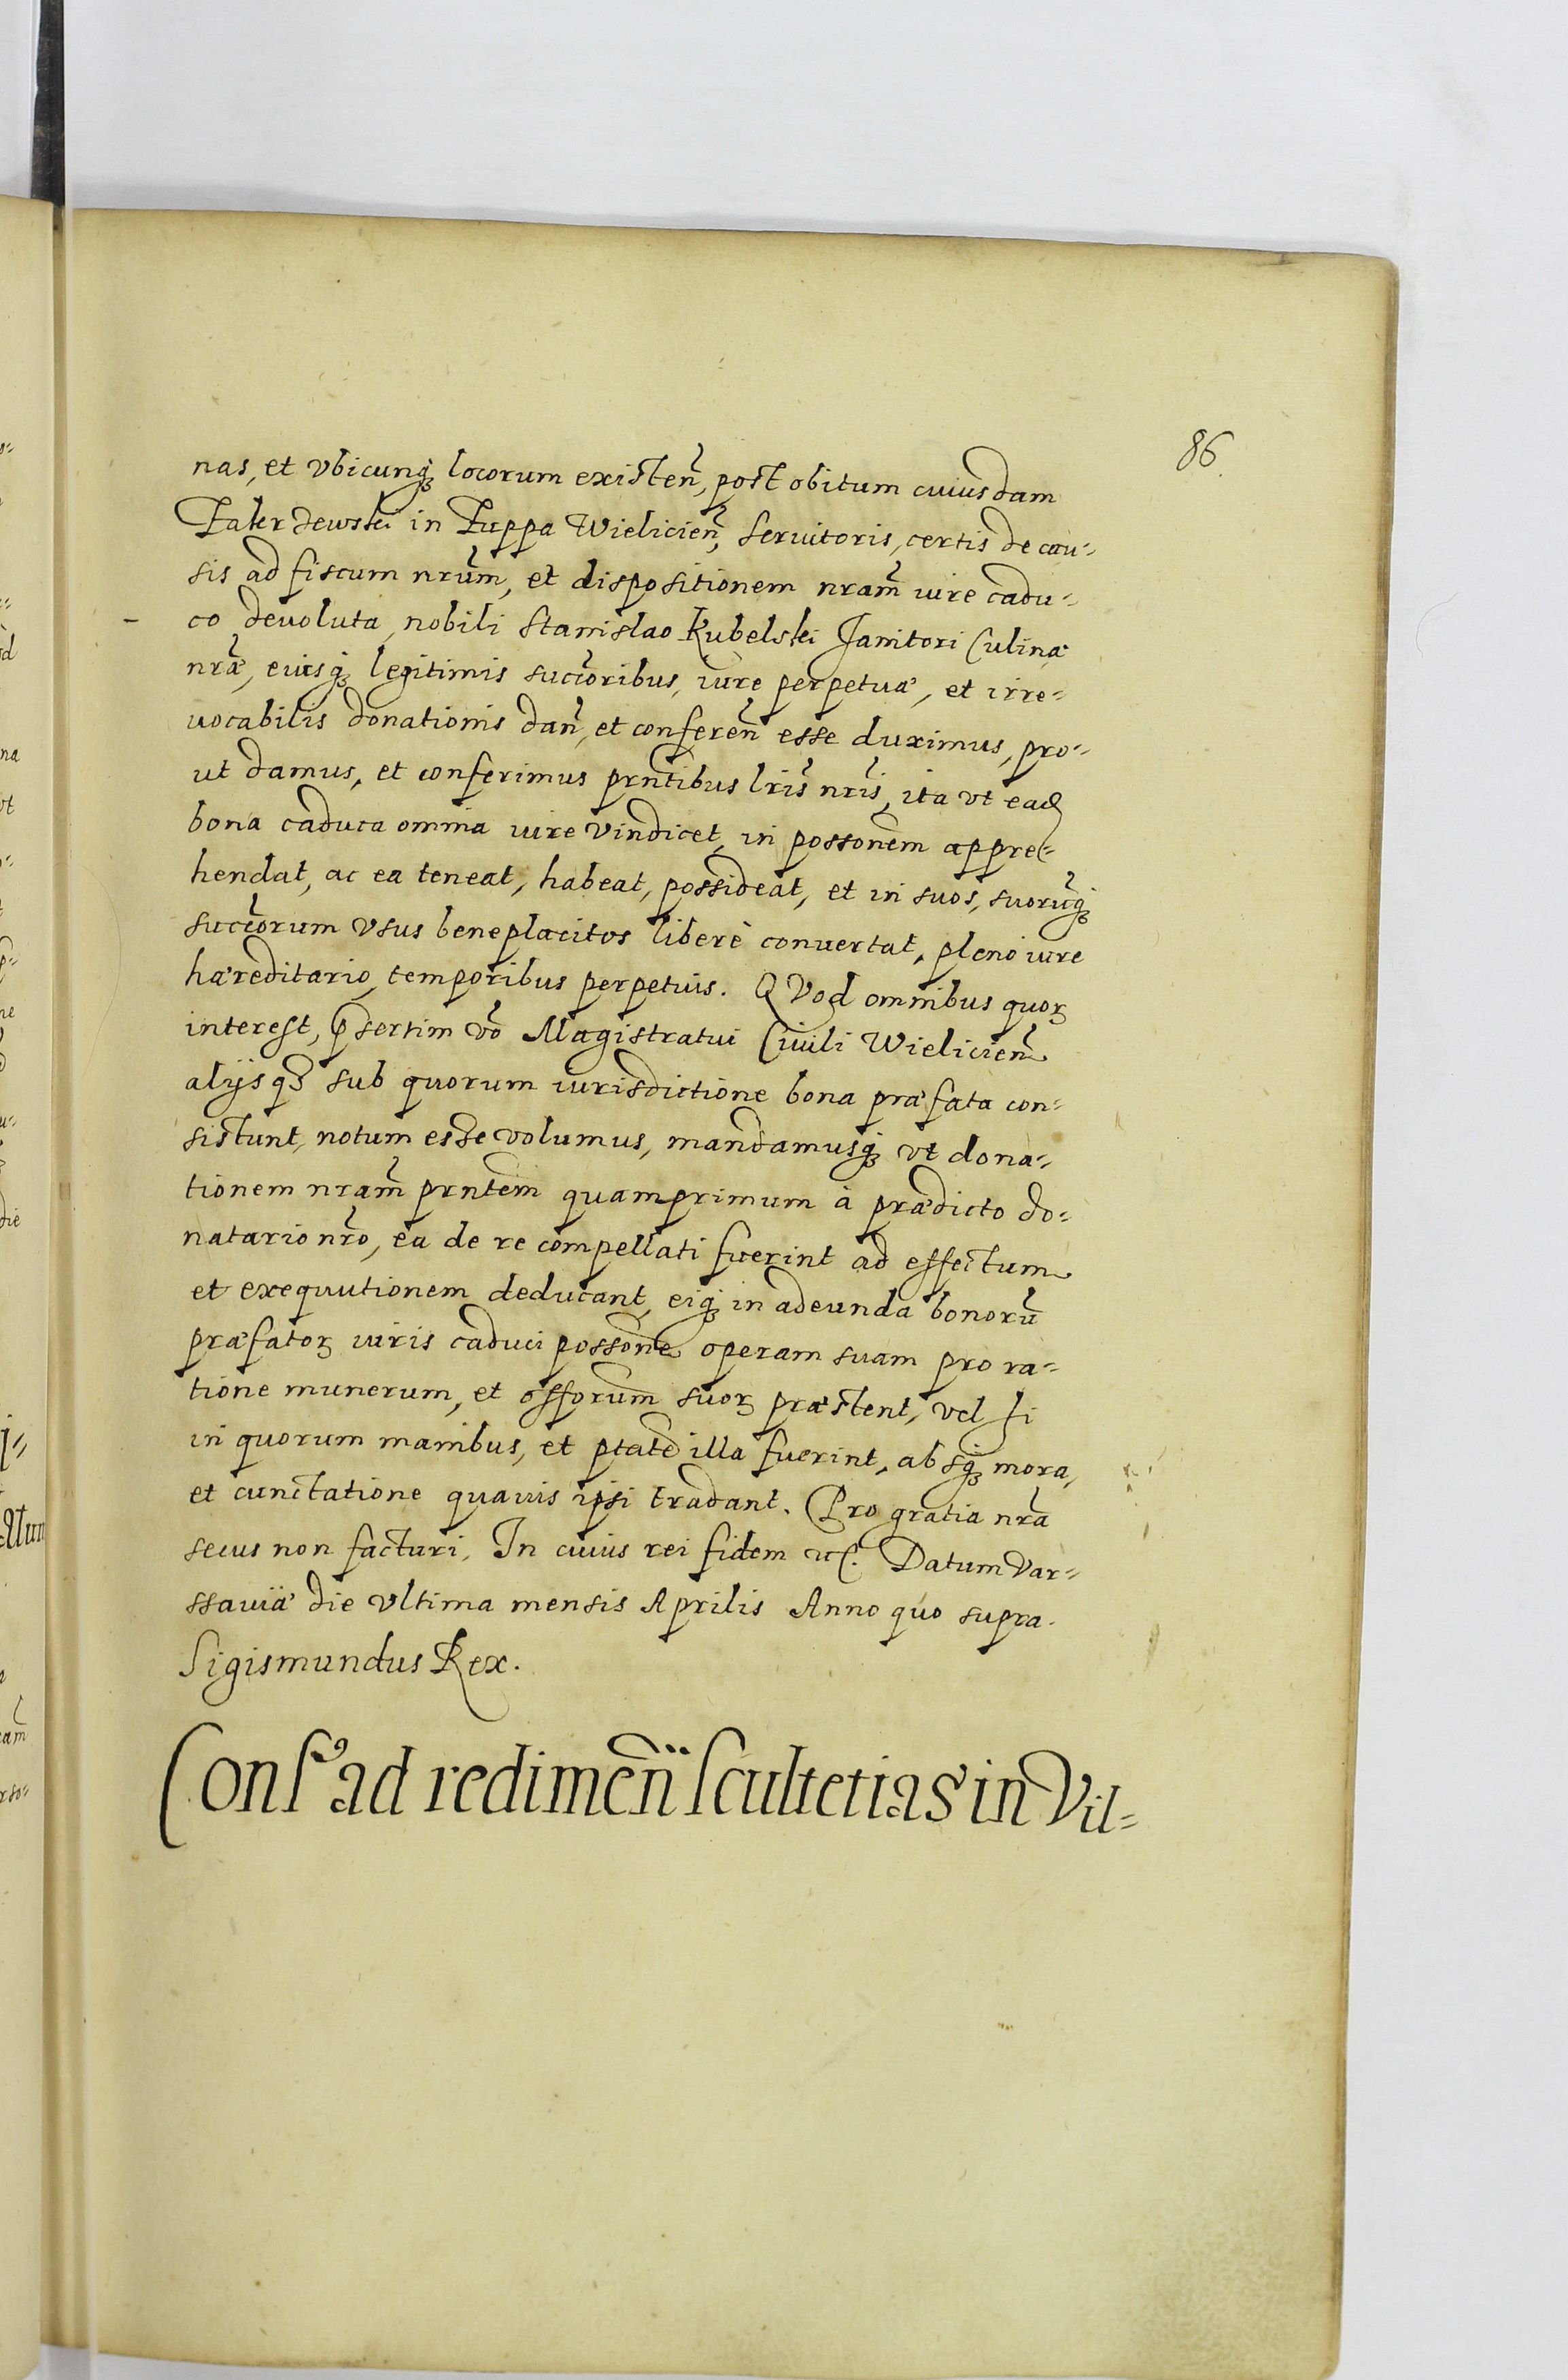 86.
nas, et vbicunq₃ locorum existen̄, post obitum cuiusdam
Zakerdewski in Zuppa Wielicien̄, seruitoris, certis de cau=
sis ad fiscum nrūm, et dispositionem nram̄ iure cadu=
co deuoluta, nobili Stanislao Kubelski Janitori Culinæ
nrǣ, eiusq₃ legitimis succōribus, iure perpetuæ, et irre=
uocabilis donationis dan̄, et conferen̄ esse duximus, pro=
ut damus, et conferimus prn̄tibus lrīs nrīs, ita vt ead
bona caduca omnia iure vindicet, in possonēm appre=
hendat, ac ea teneat, habeat, possideat, et in suos, suorūq₃
succōrum vsus beneplacitos liberè conuertat, pleno iure
hæreditario, temporibus perpetuis. QVod omnibus quoꝝ
interest, p̄sertim vō Magistratui Ciuili Wielicien̄
alijsq₃ sub quorum iurisdictione bona præfata con=
sistunt, notum esse volumus, mandamusq₃ vt dona=
tionem nram̄ prntēm quamprimum à prædicto do=
natario nrō, ea de re compellati fuerint ad effectum
et exequutionem deducant, eiq₃ in adeunda bonorū
præfatoꝝ iuris caduci possonē operam suam pro ra=
tione munerum, et offorūm suoꝝ præstent, vel si
in quorum manibus, et ptatē illa fuerint, absq₃ mora,
et cunctatione quauis ipsi tradant. Pro gratia nrā
secus non facturi. In cuius rei fidem etc. Datum Var=
ssauiæ die vltima mensis Aprilis Anno quo supra.
Sigismundus Rex.
Cons⁹ ad redimen̄ scultetias in Vil=